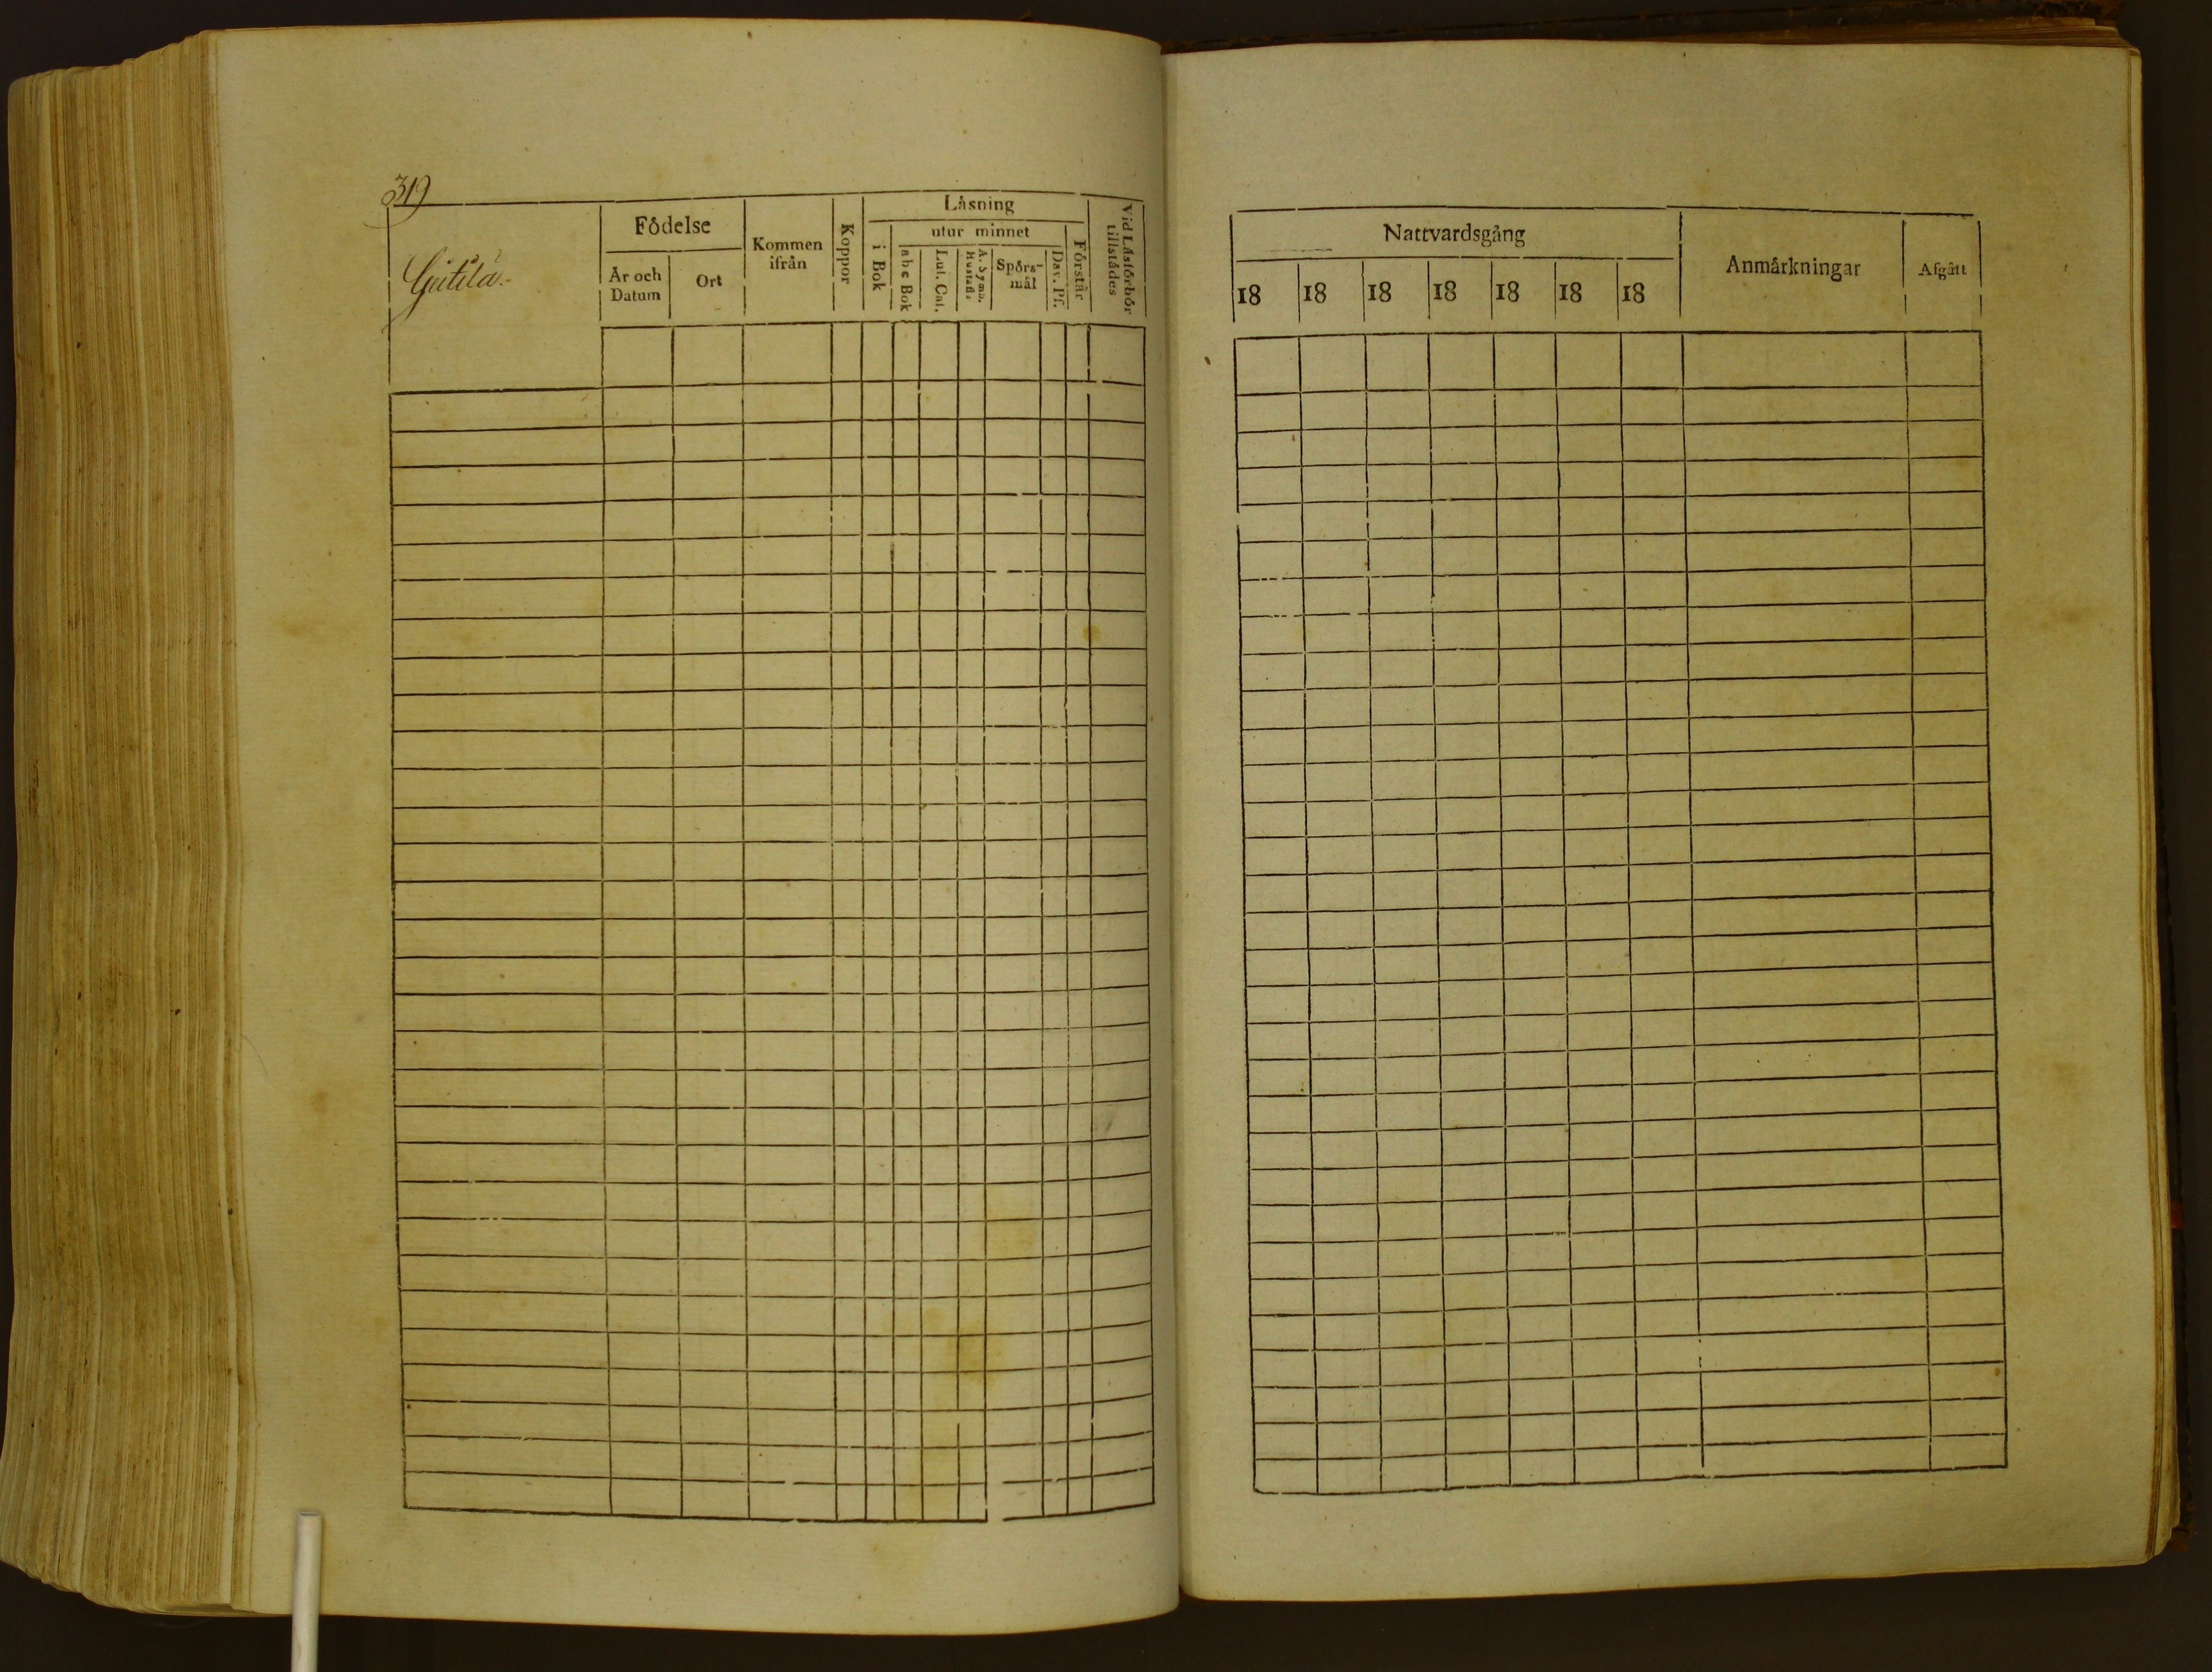 319
Födelse
Kommen ifrån
Koppor
Läsning
i Bok
utur minnet
abc Bok
Lut. Cat.
A. Symb.
Hustafl.
Spörs-
mål
Dav. Ps.
Förstår
Vid Läsförhör
tillstädes
År och
Datum
Ort
Nattvardsgång
18 18 18 18 18 18 18
Anmärkningar
Afgått